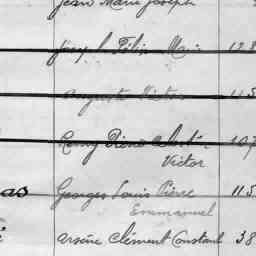 Jean Marie Joseph
Joseph Félix Marie 128
Auguste Victor 115
Remy Pierre Célestin 107
Victor
as Georges Louis Pierre 115
Emmanuel
Arsène Clément Constant 38